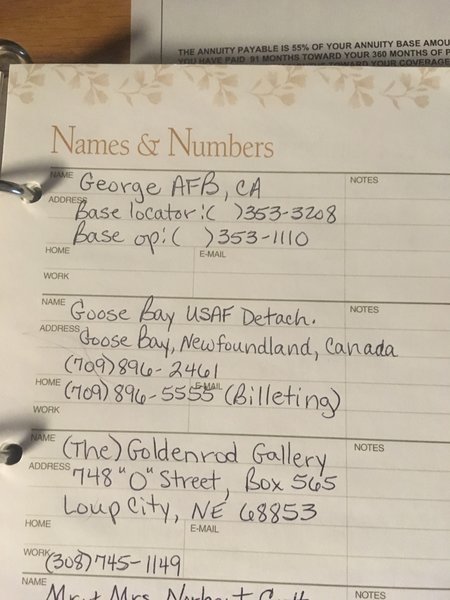 THE ANNUITY PAYABLE IS 55% OF YOUR ANNUITY BASE AMOU
YOU HAVE PAID 91 MONTHS TOWARD YOUR 360 MONTHS OF P
TOWARD YOUR COVERAGE
Names & Numbers
NAME George AFB, CA NOTES
ADDRESS Base locator:( )353-3208
Base op:( )353-1110
HOME E-MAIL
WORK
NAME Goose Bay USAF Detach. NOTES
ADDRESS Goose Bay, Newfoundland, Canada
(709)896-2461
HOME (709)896-5555 (Billeting) E-MAIL
WORK
NAME (The) Goldenrod Gallery NOTES
ADDRESS 748 "O" Street, Box 565
Loup City, NE 68853
HOME E-MAIL
WORK (308)745-1149
NAME Mr. & Mrs. Norbert NOTES